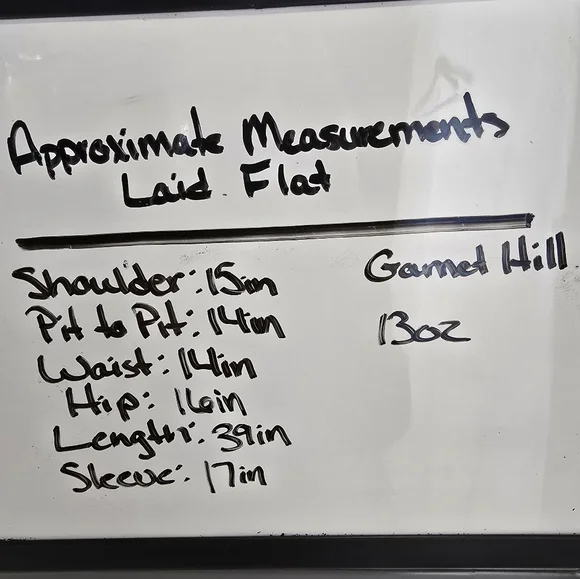 Approximate Measurements
Laid Flat
Shoulder: 15in
Pit to Pit: 14in
Waist: 14in
Hip: 16in
Length: 39in
Sleeve: 17in
Garnet Hill
13oz